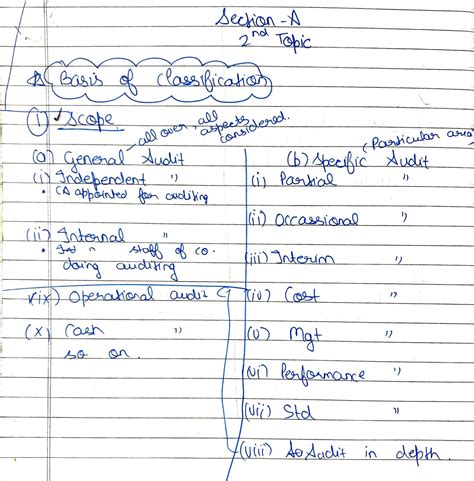 Section-A
2nd Topic
Basis of Classification
(1) ✓ Scope
all over, all aspects considered.
(a) General Audit
(i) Independent "
• CA appointed for auditing
(ii) Internal "
• " staff of co.
doing auditing
(Particular area)
(b) Specific Audit
(i) Partial "
(ii) Occassional "
(iii) Interim "
(iv) Cost "
(v) Mgt "
(vi) Performance "
(vii) Std "
(viii) Audit in depth.
ix) Operational audit
(x) Cash "
so on.